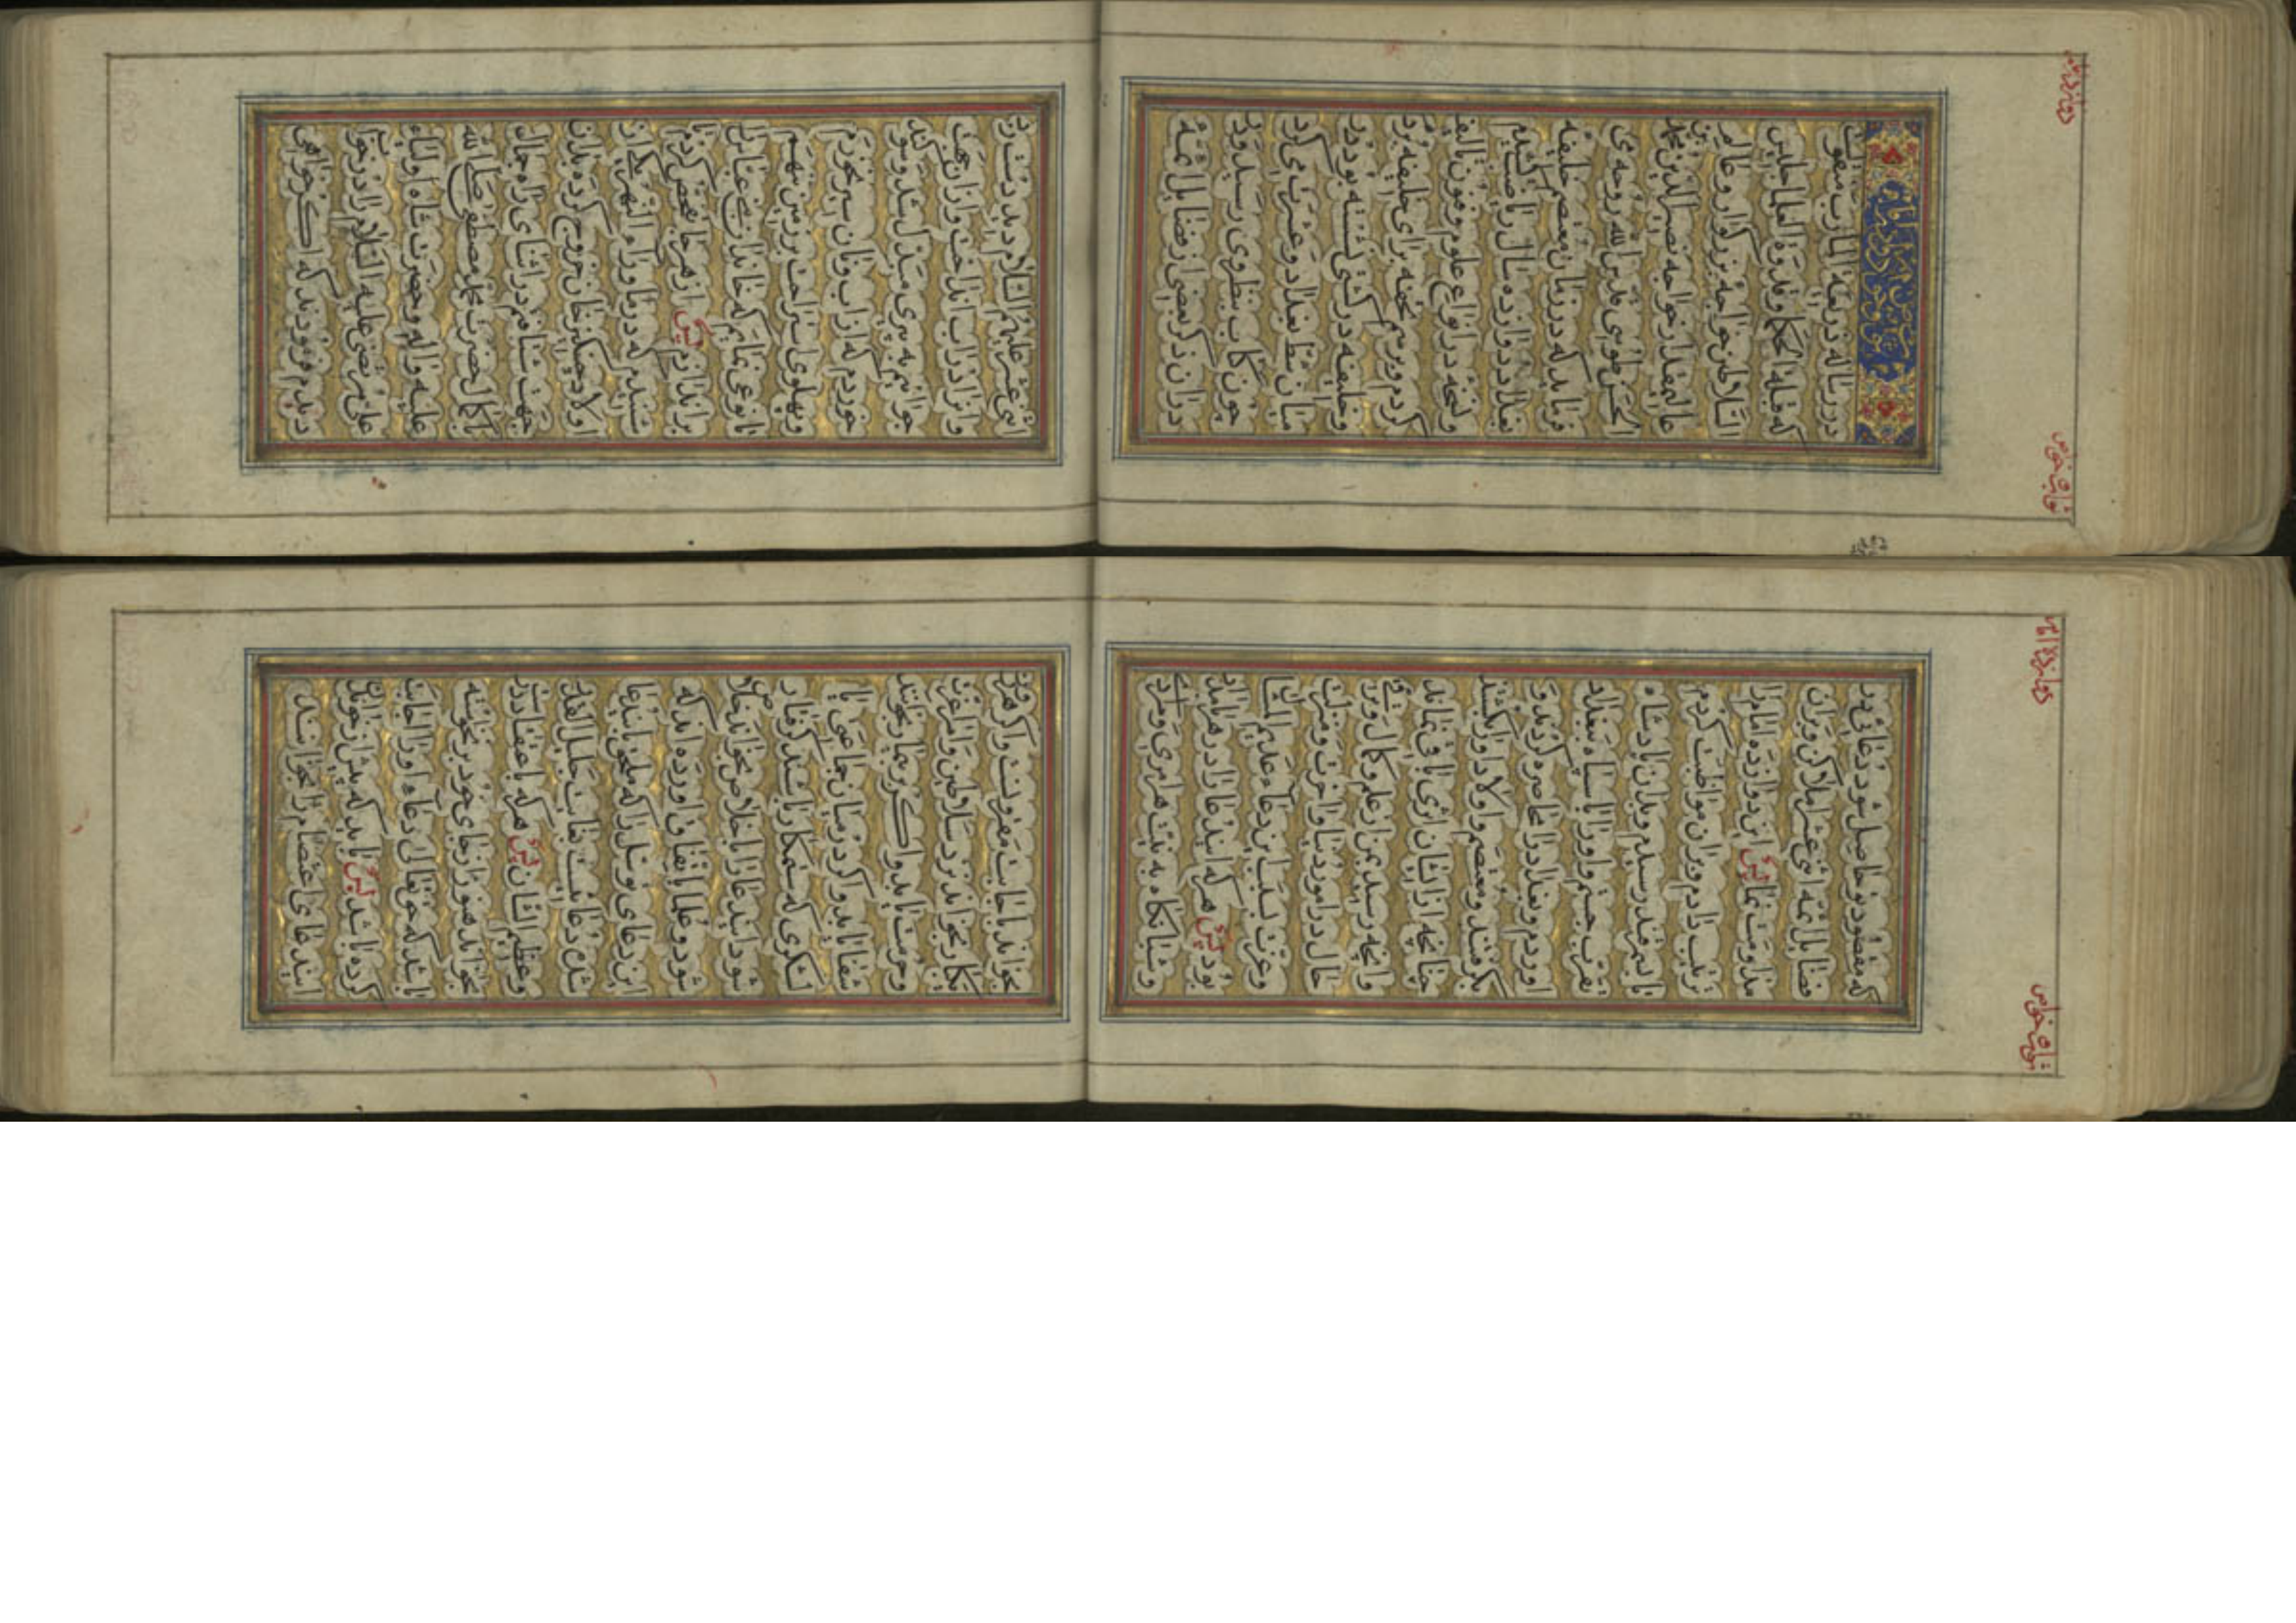 در رساله ذریعة المآرب منقولست
که قبلة الحکما و قدوة العلما
السلاطین خواجه بزرگوار و عالم
عالیمقدار خواجه نصیر الدین محمد بن
الحسن طوسی قدس الله روحه می
فرماید که در زمان معتصم خلیفه
بغداد دوازده سال ریاضت کشیدم
و نسخه در انواع علوم و فنون تالیف
کردم و برسم تحفه برای خلیفه بردم
و خلیفه در کشتی نشسته بود و در
میان شط بغداد و عشرت می کرد
چون کتاب بنظر وی رسید و دید
در آن ذکر بعضی از فضایل ائمه
اثنی عشر علیهم السلام دید
و آنرا در آب انداخت و از آن جهت
جوانیم به پیری مبدل شد و سوگند
خوردم که از آب و نان سیر نخورم
و پهلوی استراحت بر زمین ننهم
تا نوعی نمایم که خاندان بنی عباس را
براندازم پس از هر جا تفحص کردم تا
شنیدم که در ماوراء النهر یکی از
اولاد چنگیز خان خروج کرده بدان
جهت شتافتم در اثنای راه جمال
باکمال حضرت محمد مصطفی صلی الله
علیه و آله و حضرت شاه اولیاء
علی مرتضی علیه السلام را در خواب
دیدم فرمودند که اگر خواهی
دوازده امام
که مقصود تو حاصل شود دعائی در
فضایل ائمه اثنی عشر املا کن و بر آن
مداومت نما پس این دوازده امام را
ترتیب دادم و بر آن مواظبت کردم
تا بسمرقند رسیدم و بدان پادشاه
تقرب جستم و او را با سپاه ببغداد
آوردم و بغداد را محاصره کردند و
بگرفتند و معتصم و اولاد او را بکشتند
چنانچه از ایشان اثری باقی نماند
و آنچه رسید بمن از علم و کمال و برتری
حال در امور دنیا و آخرت و منزلت
و عزت بسبب این دعاء علیهم السلام
بود پس هر که این دعا را در هر بامداد
و شبانگاه به نیت هر امری و مرادی
بخواند باجابت مقرونست و اگر هر روز
یکبار بخواند نزد سلاطین و امرا عزت
و حرمت یابد و اگر بر بیمار بخوانند
شفا یابد و اگر در میان جماعتی یا
لشکری که ستمکار باشند گرفتار
شود این دعا را باخلاص بخواند خلاص
شود و علما باتفاق آورده اند که
این دعای توسل را که ملحق باین دعا
شده دعائیست بغایت جلیل القدر
و عظیم الشان پس هر که باعتقاد درست
بخواند هنوز از جای خود برنخاسته
باشد که حق تعالی دعاء او را اجابت
کرده باشد پس باید که پیش از خواندن
این دعای اعتصام را بخوانند